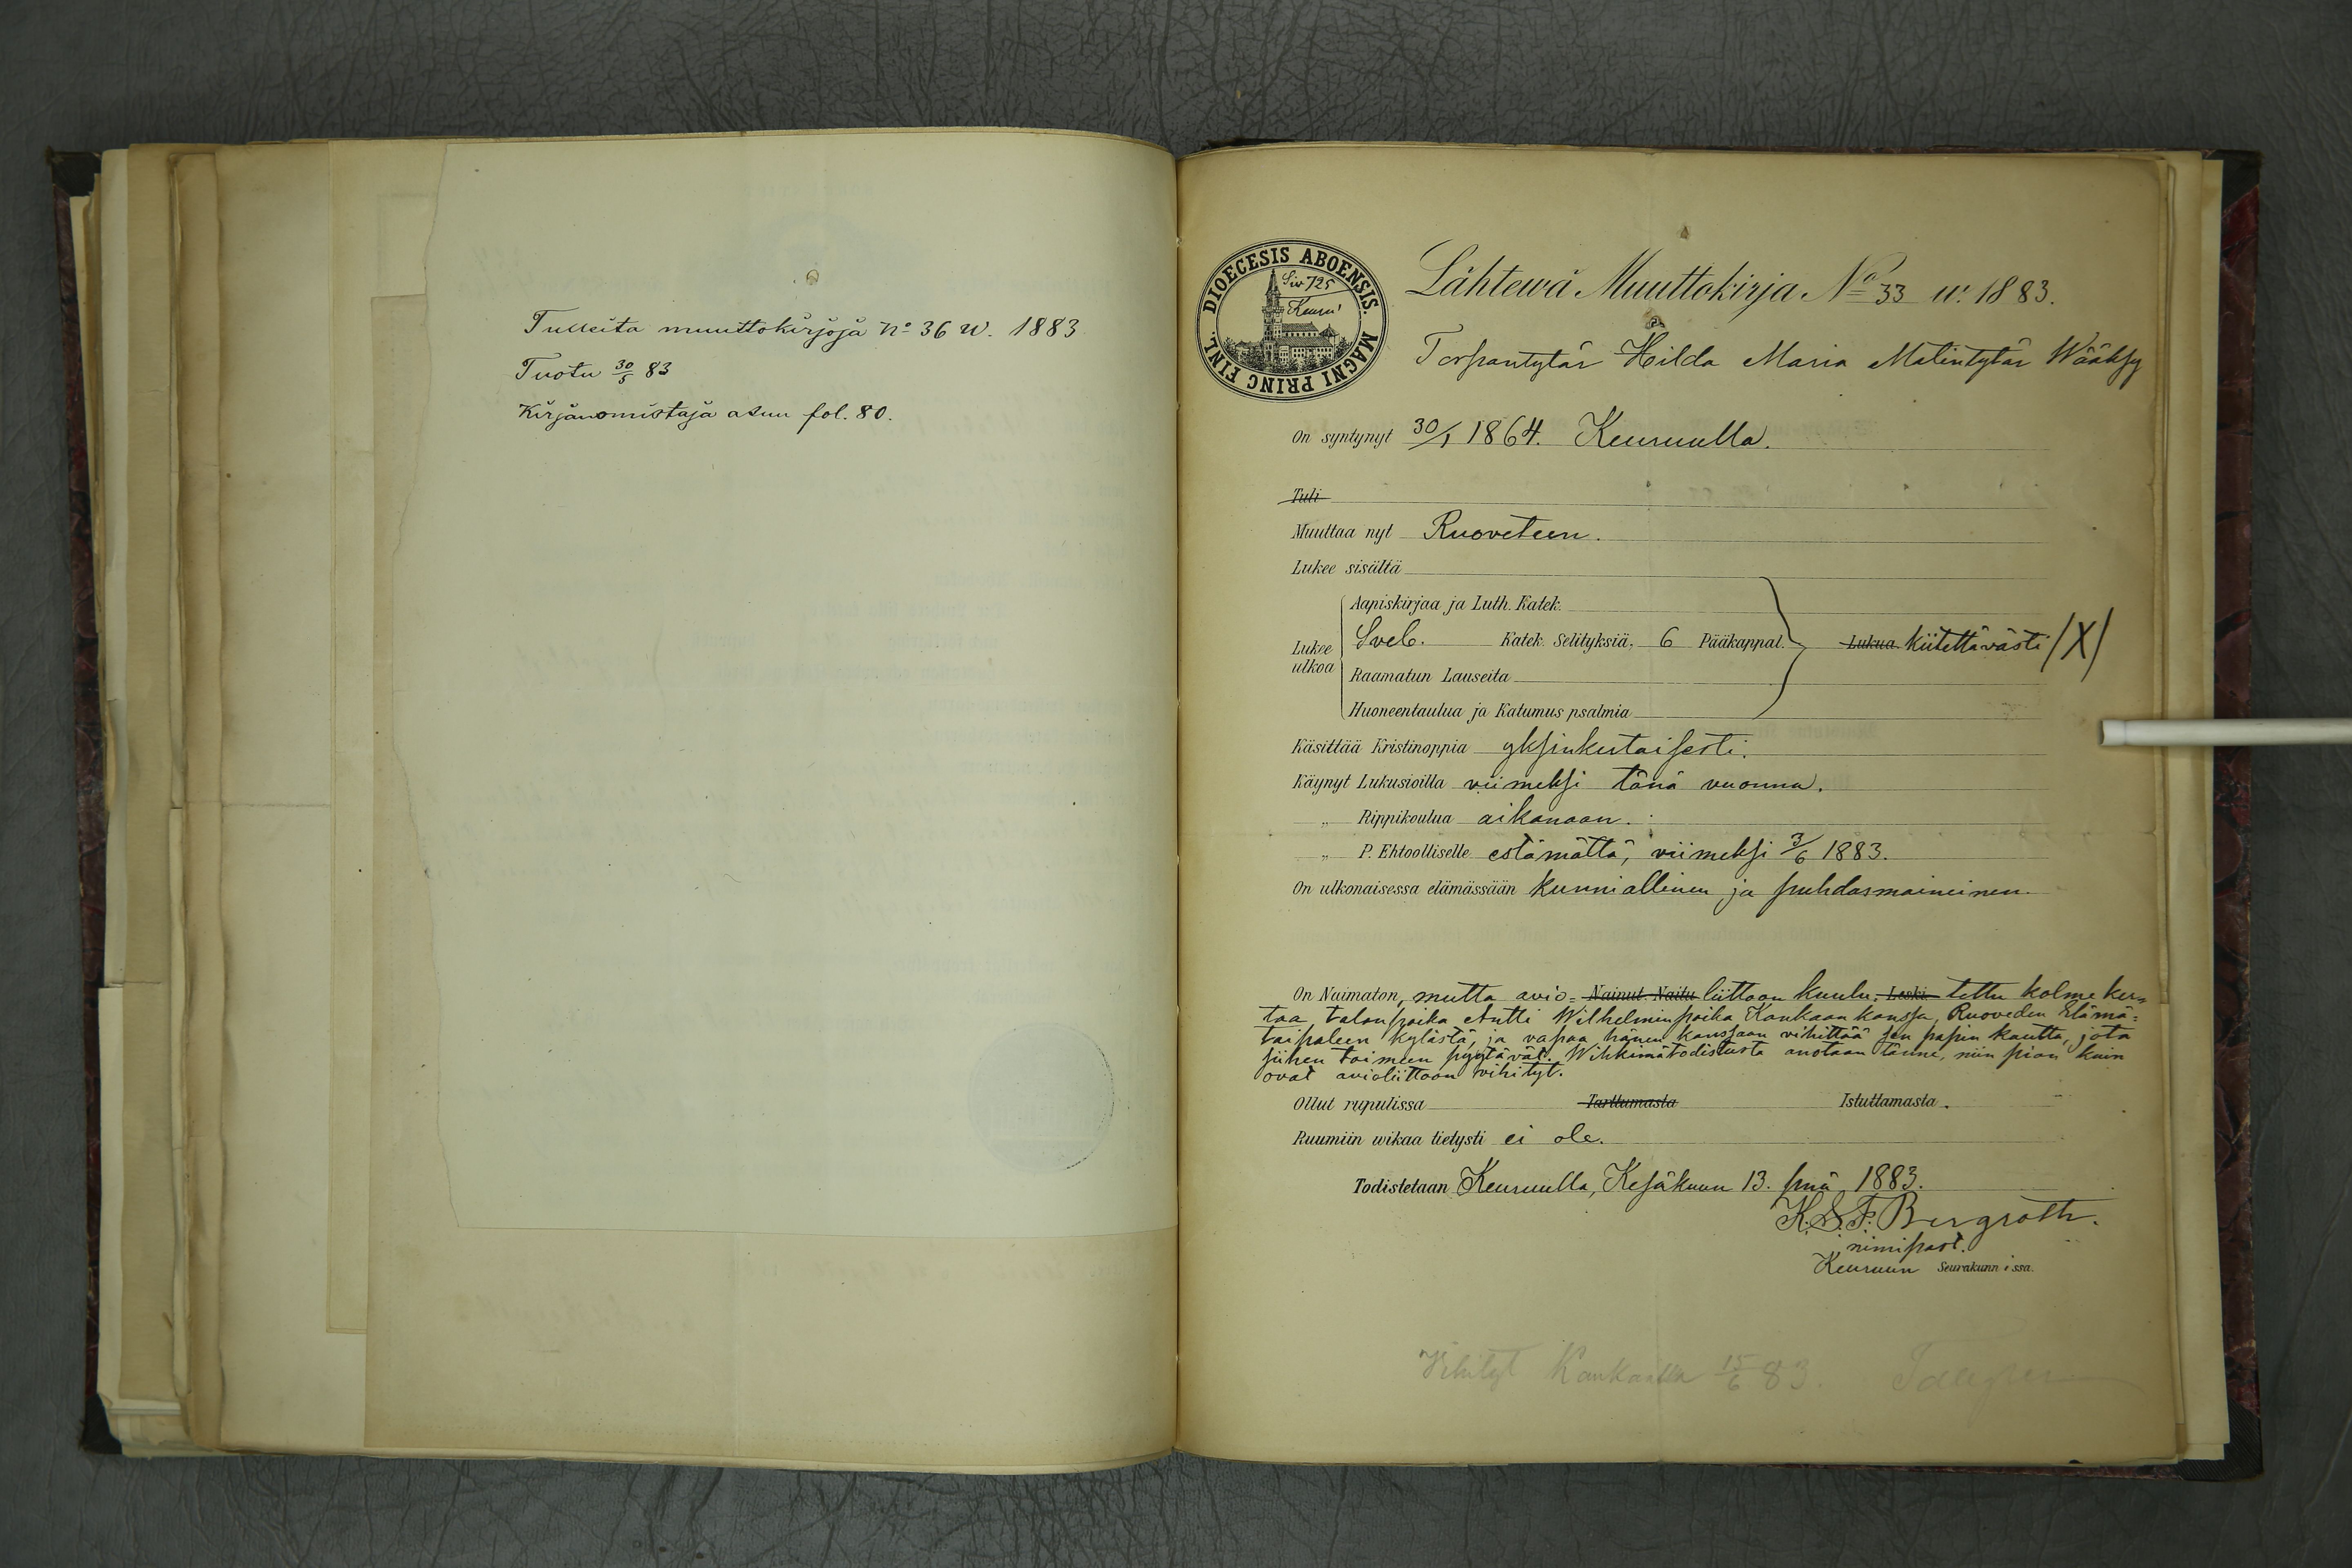 Tulleita muuttokirjoja No 36 w. 1883
Tuotu 30/5 83
Kirjanomistaja asuu fol. 80.
DIOECESIS ABOENSIS. MAGNI PRINC FINL.
Siv 725
Keuru
Lähtewä Muuttokirja No 33 w. 1883.
Torpantytär Hilda Maria Matintytär Wääksy
On syntynyt 30/1 1864. Keuruulla.
Tuli
Muuttaa nyt Ruoveteen.
Lukee sisältä
Aapiskirjaa ja Luth. Katek.
Lukee ulkoa
Sveb. Katek. Selityksiä, 6 Pääkappal. Lukua kiitettävästi /X/
Raamatun Lauseita
Huoneentaulua ja Katumus psalmia
Käsittää Kristinoppia yksinkertaisesti.
Käynyt Lukusioilla viimeksi tänä vuonna.
„ Rippikoulua aikanaan.
„ P. Ehtoolliselle estämättä, viimeksi 3/6 1883.
On ulkonaisessa elämässään kunniallinen ja puhdasmaineinen.
On Naimaton, mutta avio= Nainut Naitu liittoon kuulu. Leski tettu kolme ker=
taa talonpoika Antti Wilhelminpoika Kankaan kanssa, Ruoveden Elämä=
taipaleen kylästä, ja vapaa hänen kanssaan vihittää sen papin kautta, jota
siihen toimeen pyytävät. Wihkimätodistusta anotaan tänne, niin pian kuin
ovat avioliittoon vihityt.
Ollut rupulissa Tarttumasta Istuttamasta.
Ruumiin wikaa tietysti ei ole.
Todistetaan Keuruulla, Kesäkuun 13. pnä 1883.
K. S. F. Bergroth.
nimipast.
Keuruun Seurakunnissa.
Vihityt Kankaalla 15/6 83.